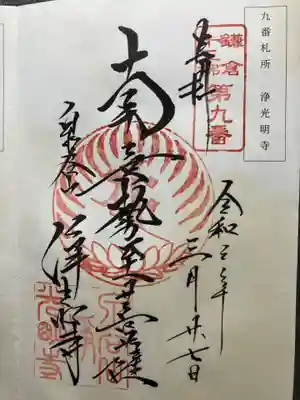 九番札所 浄光明寺
鎌倉
第九番
奉拝
南無勢至菩薩
泉谷山
浄光明寺
令和三年
三月廿七日